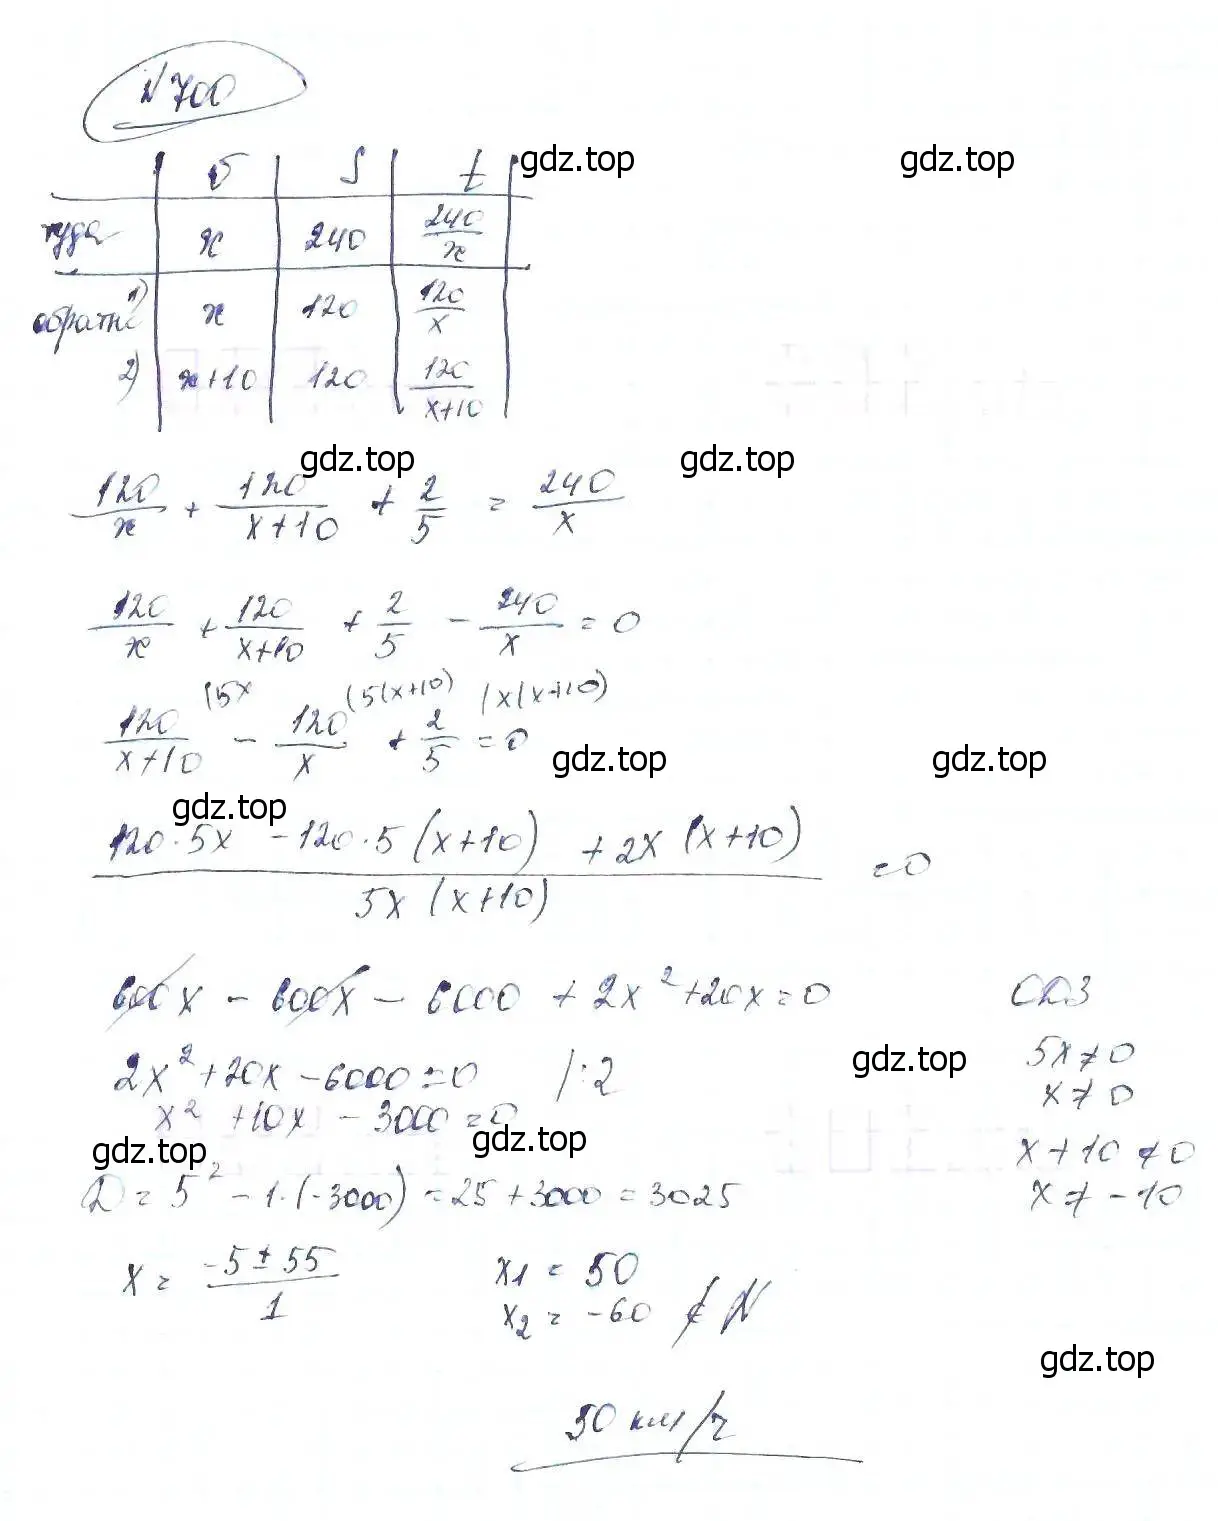 №700
υ S t
gdz.top gdz.top
туда x 240 240/x
обратно 1) x 120 120/x
2) x+10 120 120/(x+10)
gdz.top gdz.top
120/x + 120/(x+10) + 2/5 = 240/x
120/x + 120/(x+10) + 2/5 - 240/x = 0
(5x (5(x+10) (x(x+10)
120/(x+10) - 120/x + 2/5 = 0
gdz.top gdz.top
gdz.top
(120·5x - 120·5(x+10) + 2x(x+10))/(5x(x+10)) = 0
600x - 600x - 6000 + 2x²+20x=0 ОДЗ
2x²+20x-6000=0 /:2 gdz.top 5x≠0
x²+10x-3000=0 x≠0
gdz.top gdz.top x+10≠0
D = 5² - 1·(-3000) = 25+3000 = 3025 x≠-10
x = (-5±55)/1 x1 = 50
x2 = -60 ∉ N
gdz.top
50 км/ч